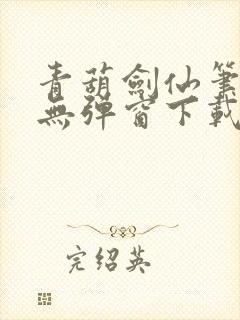 青葫劍仙筆
無彈窗下載
完绍英